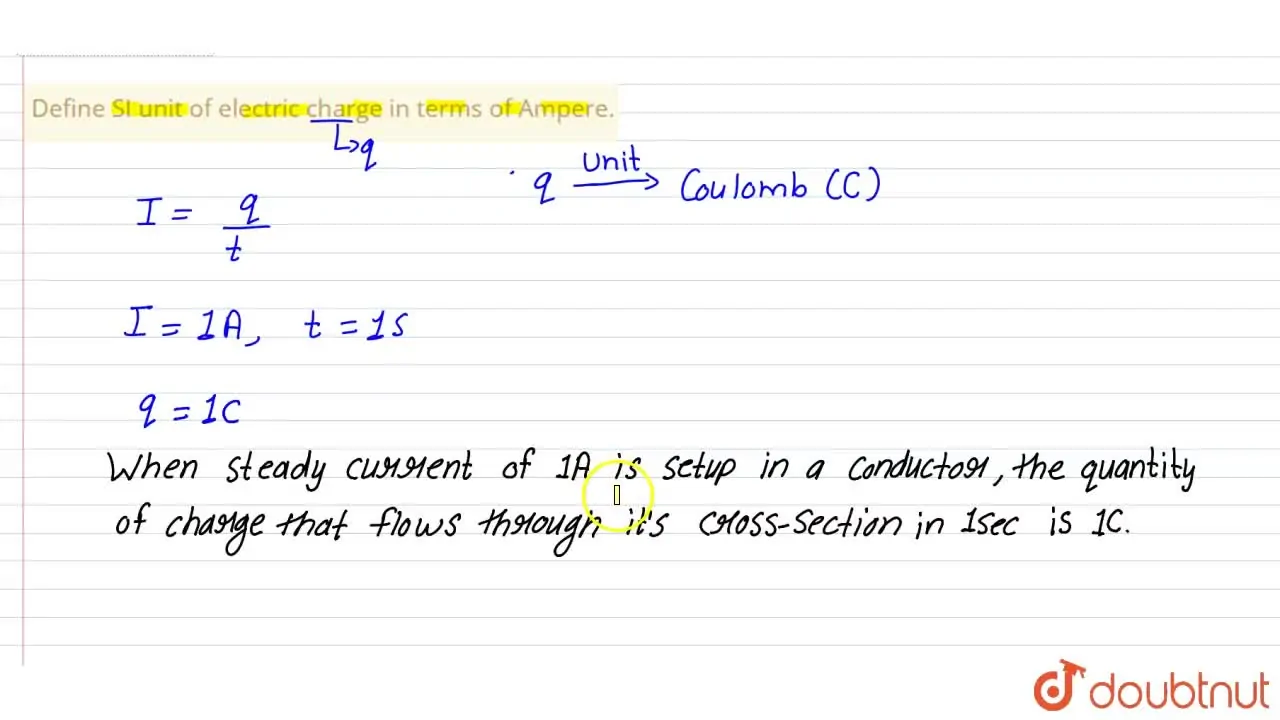 Define SI unit of electric charge in terms of Ampere.
↳q
q Unit→ Coulomb (C)
I = q/t
I = 1A, t = 1s
q = 1C
When steady current of 1A is setup in a conductor, the quantity
of charge that flows through it's cross-section in 1sec is 1C.
doubtnut